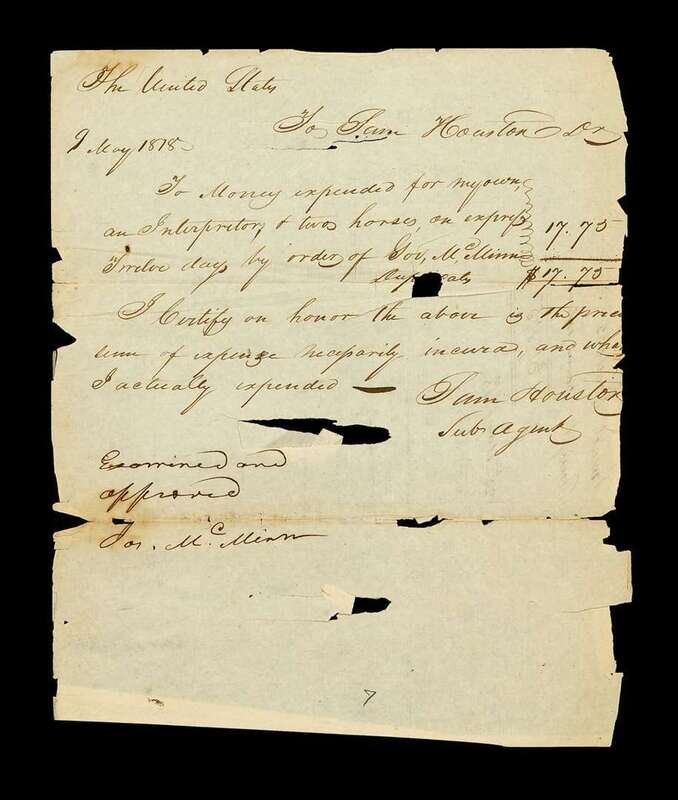 The United States
To Sam Houston Dr
9 May 1818
To Money expended for my own,
an Interpretor, & two horses, on express 17.75
Twelve days by order of Gov, McMinn $17.75
Duplicate
I Certify on honor the above is the precise
sum of expense necessarily incured, and what
I actually expended —
Sam Houston
Sub Agent
Examined and
approved
Jos. McMinn
7